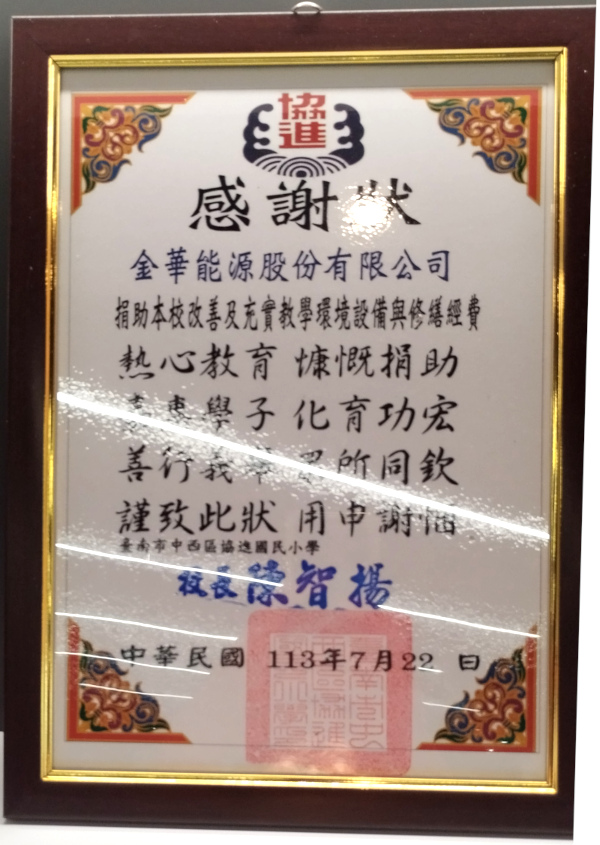 協進
感謝狀
金華能源股份有限公司
捐助本校改善及充實教學環境設備與修繕經費
熱心教育 慷慨捐助
嘉惠學子 化育功宏
善行義舉 眾所同欽
謹致此狀 用申謝悃
臺南市中西區協進國民小學
校長 陳智揚
中華民國 113年7月22日